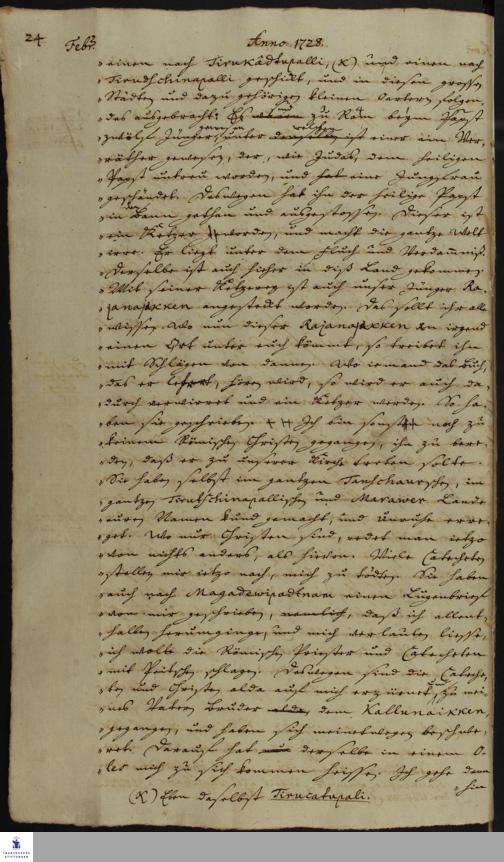 24
Febr.
Anno 1728.
einen nach Tirukâdtupalli, (X) und einen nach
Tirudschinapalli geschickt, und in diesen grossen
Städten und dazu gehörigen kleinen Oertern, folgen-
des ausgebracht: Es zu Rom beym Papst
zwölf Jünger, unter ist einer ein Ver-
räther gewesen, der, wie Judas, dem heiligen
Papst untreu worden, und hat eine Jungfrau
geschändet. Deswegen hat ihn der heilige Papst
in Bann gethan und ausgestossen. Dieser ist
ein Ketzer worden, und macht die gantze Welt
irre. Er liegt unter dem Fluch und Verdamniß.
Derselbe ist auch hieher in diß Land gekommen.
Mit seiner Ketzerey ist auch unser Jünger Ra-
janaikken angesteckt worden. Das sollt ihr alle
wissen. Wo nun dieser Rajanaikken an irgend
einen Ort unter euch kommt, so treibet ihn
mit Schlägen von dannen. Wo iemand das Buch,
das er lehret, hören wird, so wird er auch da-
durch verwirret und ein Ketzer werden. So ha-
ben sie geschrieben. Ich bin sonst noch zu
keinem Römischen Christen gegangen, ihn zu bere-
den, daß er zu unserer Kirche treten solte.
Sie haben selbst im gantzen Tanschaurschen, im
gantzen Tirutschinapallischen und Marawer Lande
euren Namen kund gemacht, und Unruhe erre-
get. Wo nur Christen sind, redet man ietzo
von nichts anders, als hievon. Viele Catecheten
stellen mir ietzo nach, mich zu tödten. Sie haben
auch nach Magadewipadtnam einen Lügenbrief
von mir geschrieben, nemlich, daß ich allent-
halben herumginge, und mich verlauten liesse,
ich wolte die Römischen Priester und Catecheten
mit Peitschen schlagen. Deswegen sind die Cateche-
ten und Christen alda auf mich erzürnet, zu mei-
nes Vatern Bruder dem Kallunaikken,
gegangen, und haben sich meinetwegen beschwe-
ret. Darauf hat derselbe in einem O-
les mich zu sich kommen heissen. Ich gehe dann
hin
(X) Eben daselbst Tirucatupali.
FRANCKESCHE
STIFTUNGEN